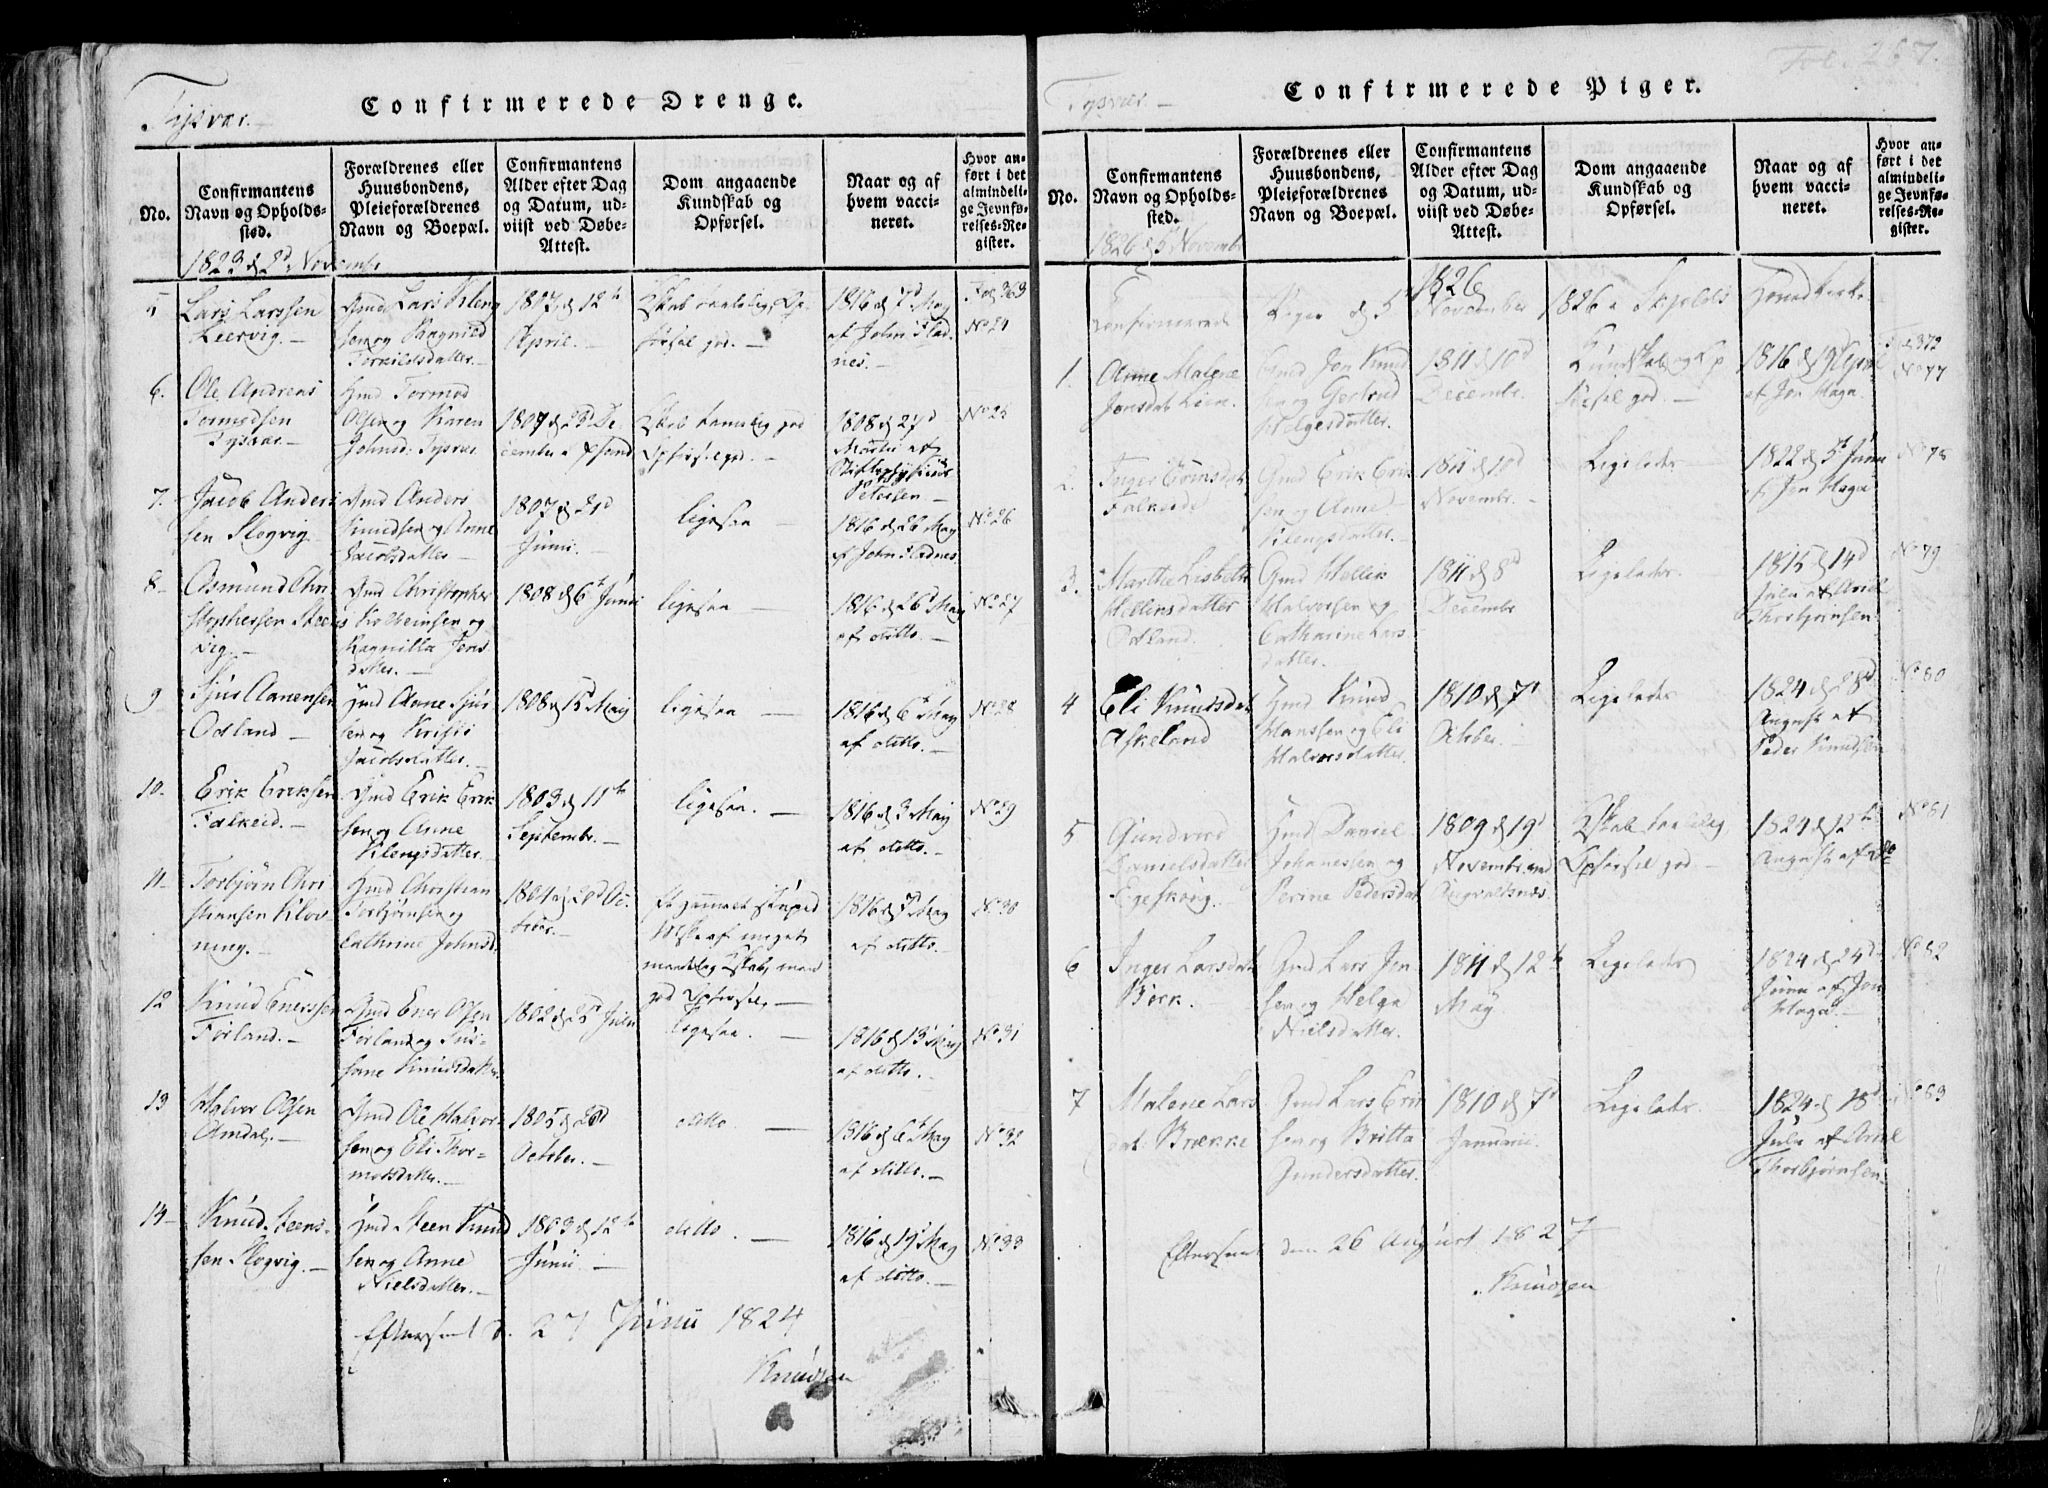 Tysvær.
Confirmerede Drenge.
No.
Confirmantens
Navn og Opholds-
sted.
Forældrenes eller
Huusbondens,
Pleieforældrenes
Navn og Boepæl.
Confirmantens
Alder efter Dag
og Datum, ud-
viist ved Døbe-
Attest.
Dom angaaende
Kundskab og
Opførsel.
Naar og af
hvem vacci-
neret.
Hvor an-
ført i det
almindeli-
ge Jevnfø-
relses-Re-
gister.
1823 d. 2d Novembr
5
Lars Larssen
Leervig.
Gmd Lars Kleng
sen og Ragnild
Torkildsdatter.
1807 d. 12te
April.
Kskab taalelig, Op-
førsel god.
1816 d. 7d May
af John Stad
nes.
Fol 363
No 24
6.
Ole Andreas
Tormodsen
Tysvær
Hmd Tormod
Olsen og Karen
Johnsd. Tysvær
1807 d. 23d De-
cember
Kskab temelig god
Opførsel gd.
1808 d. 21d
Martii af
Petersen.
No 25
7.
Jacob Anders
sen Slogvig
Gmd Anders
Knudsen og Anne
Jacobsdatter
1807 d. 21d
Junii.
ligesaa
1816 d. 26 May
af John Stadnes
No 26
8
Osmund Chri
stophersen Steens
vig.
Gmd Christopher
Kolbeinsen og
Ragnilla Jens
datter.
1808 d. 6t Junii
ligesaa
1816 d. 26 May
af ditto.
No 27
9
Sjur Aanensen
Odland
Gmd Aanne Sjur
sen og Kristi
Jacobsdatter.
1808 d. 15 May
ligesaa
1816 d. 6t May
af ditto.
No 28
10.
Erik Eriksen
Falkeid.
Gmd Erik Erik
sen og Anne
Klengsdatter.
1803 d. 11te
Septembr.
ligesaa.
1816 d. 3 May
af ditto.
No 29
11
Torbjørn Chri
stiansen Klov
ning.
Hmd Christian
Torbjørnsen og
Cathrine Johnsd.
1804 d. 20d Oc-
tober
af meget
maadelig Kskab, men
god Opførsel,
1816 d. 7d May
af ditto.
No 30
12
Knud Enerssen
Førland.
Gmd Ener Olsen
Førland og Su-
sane Knudsdatter.
1802 d. 25 Julii
ligesaa.
1816 d. 13 May
af ditto.
No 31
13
Halvor Olsen
Amdal.
Gmd Ole Halvor
sen og Eli Thor-
modsdatter.
1805 d. 28d
October.
ditto.
1816 d. 6t May
af ditto.
No 32
14
Knud Steens-
sen Slogvig.
Gmd Steen Knud
sen og Anne
Nielsdatter.
1803 d. 12te
Junii
ditto.
1816 d. 19 May
af ditto.
No 33
Efterseet d. 27 Junii 1824
Knudsen
Fol. 267.
Tysvær.
Confirmerede Piger.
No.
Confirmantens
Navn og Opholds-
sted.
Forældrenes eller
Huusbondens,
Pleieforældrenes
Navn og Boepæl.
Confirmantens
Alder efter Dag
og Datum, ud-
viist ved Døbe-
Attest.
Dom angaaende
Kundskab og
Opførsel.
Naar og af
hvem vacci-
neret.
Hvor an-
ført i det
almindeli-
ge Jevnfø-
relses-Re-
gister.
1826 d. 5 Novembr
1826
Confirmerede Piger d. 5te November 1826 i Skjolds Hovedkirke
1.
Anne Malene
Jonsdat Lien.
Gmd Jon Knud
sen og Gertrud
Helgesdatter.
1811 d. 10d
Decembr.
Kundskab og Op
førsel god.
1816 d. 19 April
af Jon Haga
Fol 372
No 77
2.
Inger Eriksdat
Falkeide
Gmd Erik Erik
sen og Anne
Klengsdatter.
1811 d. 10d
Novembr.
Ligeledes
1822 d. 5t Junii
af Jon Haga
No 78
3.
Marthe Lisbeth
Mellinsdatter
Odland.
Gmd Mellin
Halvorsen og
Catharine Lars
datter.
1811 d. 8d
Decembr
Ligeledes.
1815 d. 14d
Julii af Arid
Thorbjørnsen
No 79
4
Eli Knudsdat
Askeland
Hmd Knud
Hanssen og Eli
Halvorsdatter.
1810 d. 7d
October.
Ligeledes
1824 d. 28d
August af
Peder Knudsen
No 80
5
Gundvord
Danielsdatter
Egeskoug.
Hmd Daniel
Johannessen og
Perine Pedersdat
1809 d. 19d
Novembr.
Kskab taalelig,
Opførsel god.
1824 d. 12te
August af do
No 81
6
Inger Larsdat
Børk.
Gmd Lars Jon
sen og Helga
Nielsdatter.
1811 d. 12te
May
Ligeledes
1824 d. 24d
Junii af Jon
Haga.
No 82
7
Malene Lars
dat. Brække
Gmd Lars Erik
sen og Britta
Gundersdatter.
1810 d. 7d
Januarii.
Ligeledes.
1824 d. 18d
Julii af Arid
Thorbjørnsen.
No 83
Efterseet den 26 August 1827
Knudsen